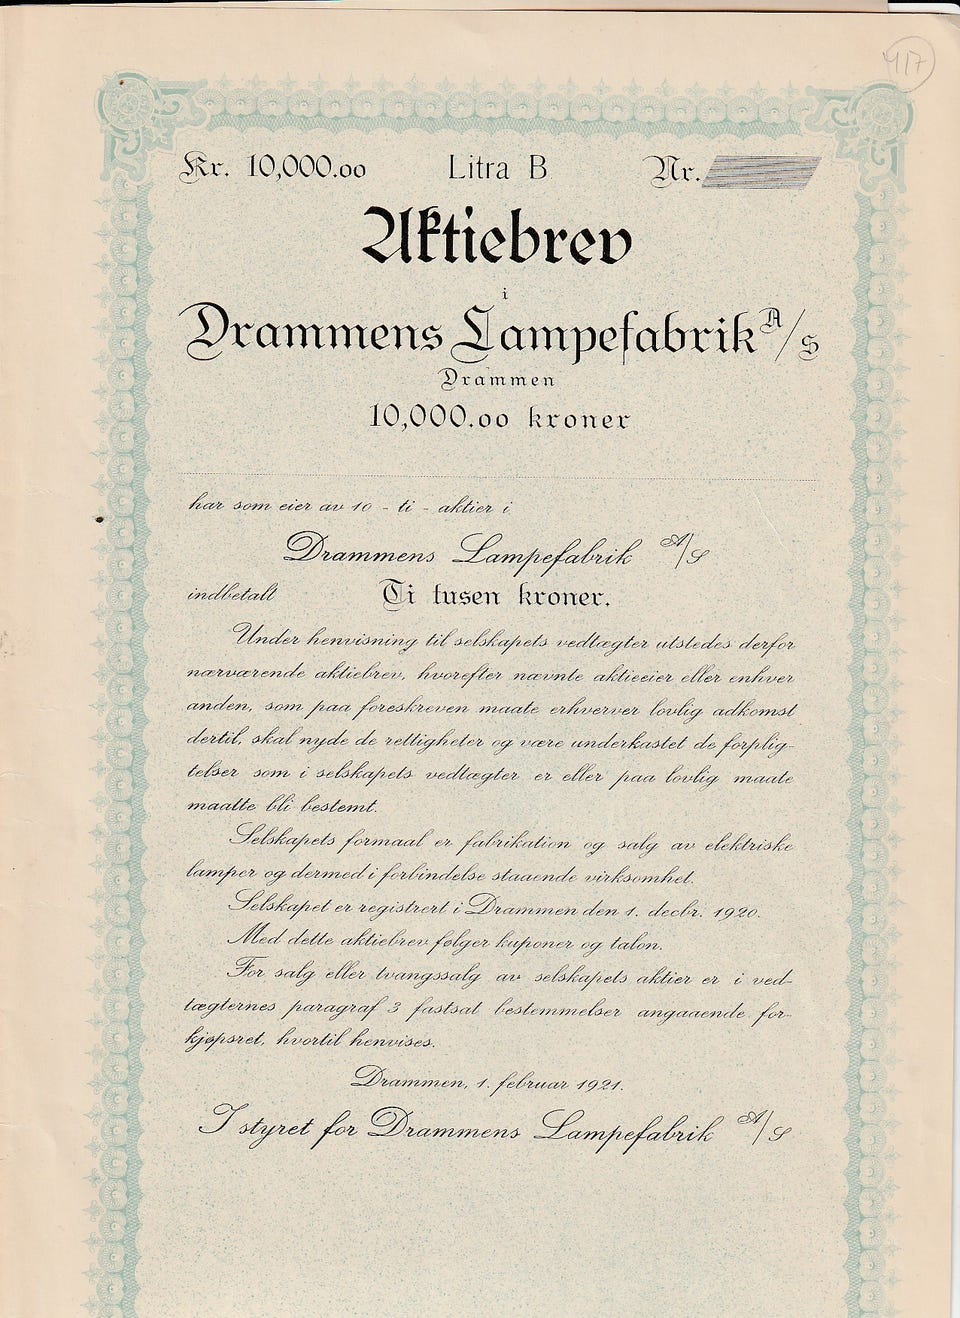 417
Kr. 10,000.00 Litra B Nr.
Aktiebrev
i
Drammens Lampefabrik A/S
Drammen
10,000.00 kroner
har som eier av 10 - ti - aktier i
Drammens Lampefabrik A/S
indbetalt Ti tusen kroner.
Under henvisning til selskapets vedtægter utstedes derfor
nærværende aktiebrev, hvorefter nævnte aktieeier eller enhver
anden, som paa foreskreven maate erhverver lovlig adkomst
dertil, skal nyde de rettigheter og være underkastet de forplig-
telser som i selskapets vedtægter er eller paa lovlig maate
maatte bli bestemt.
Selskapets formaal er fabrikation og salg av elektriske
lamper og dermed i forbindelse staaende virksomhet.
Selskapet er registrert i Drammen den 1. decbr. 1920.
Med dette aktiebrev følger kuponer og talon.
For salg eller tvangssalg av selskapets aktier er i ved-
tægternes paragraf 3 fastsat bestemmelser angaaende for-
kjøpsret, hvortil henvises.
Drammen, 1. februar 1921.
I styret for Drammens Lampefabrik A/S